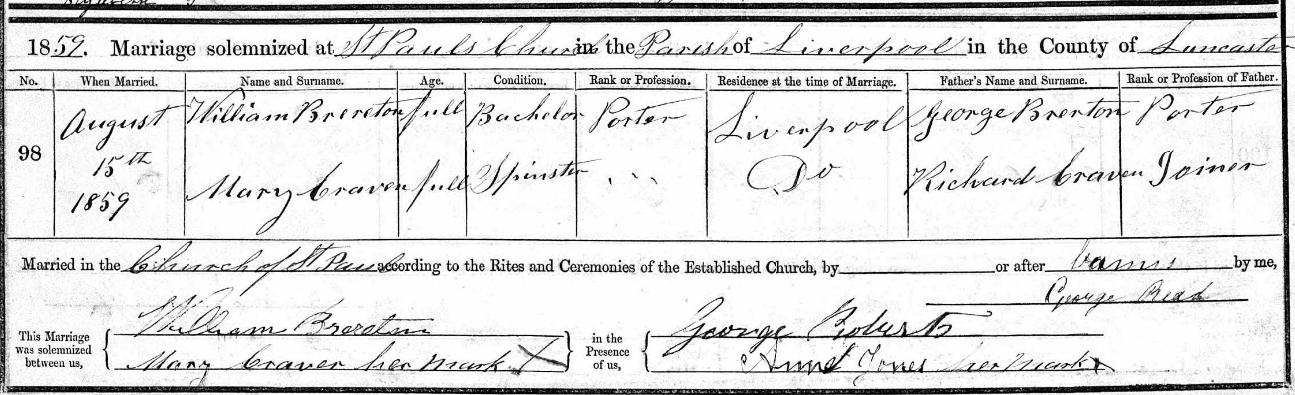 1859. Marriage solemnized at St Pauls Church in the Parish of Liverpool in the County of Lancaster
No. When Married. Name and Surname. Age. Condition. Rank or Profession. Residence at the time of Marriage. Father's Name and Surname. Rank or Profession of Father.
98 August 15th 1859 William Brereton full Bachelor Porter Liverpool George Brerton Porter
Mary Craven full Spinster Do Richard Craven Joiner
Married in the Church of St Pauls according to the Rites and Ceremonies of the Established Church, by or after banns by me,
George Read
This Marriage was solemnized between us, William Brereton in the Presence of us, George Roberts
Mary Craven her mark X Anne Jones her mark X